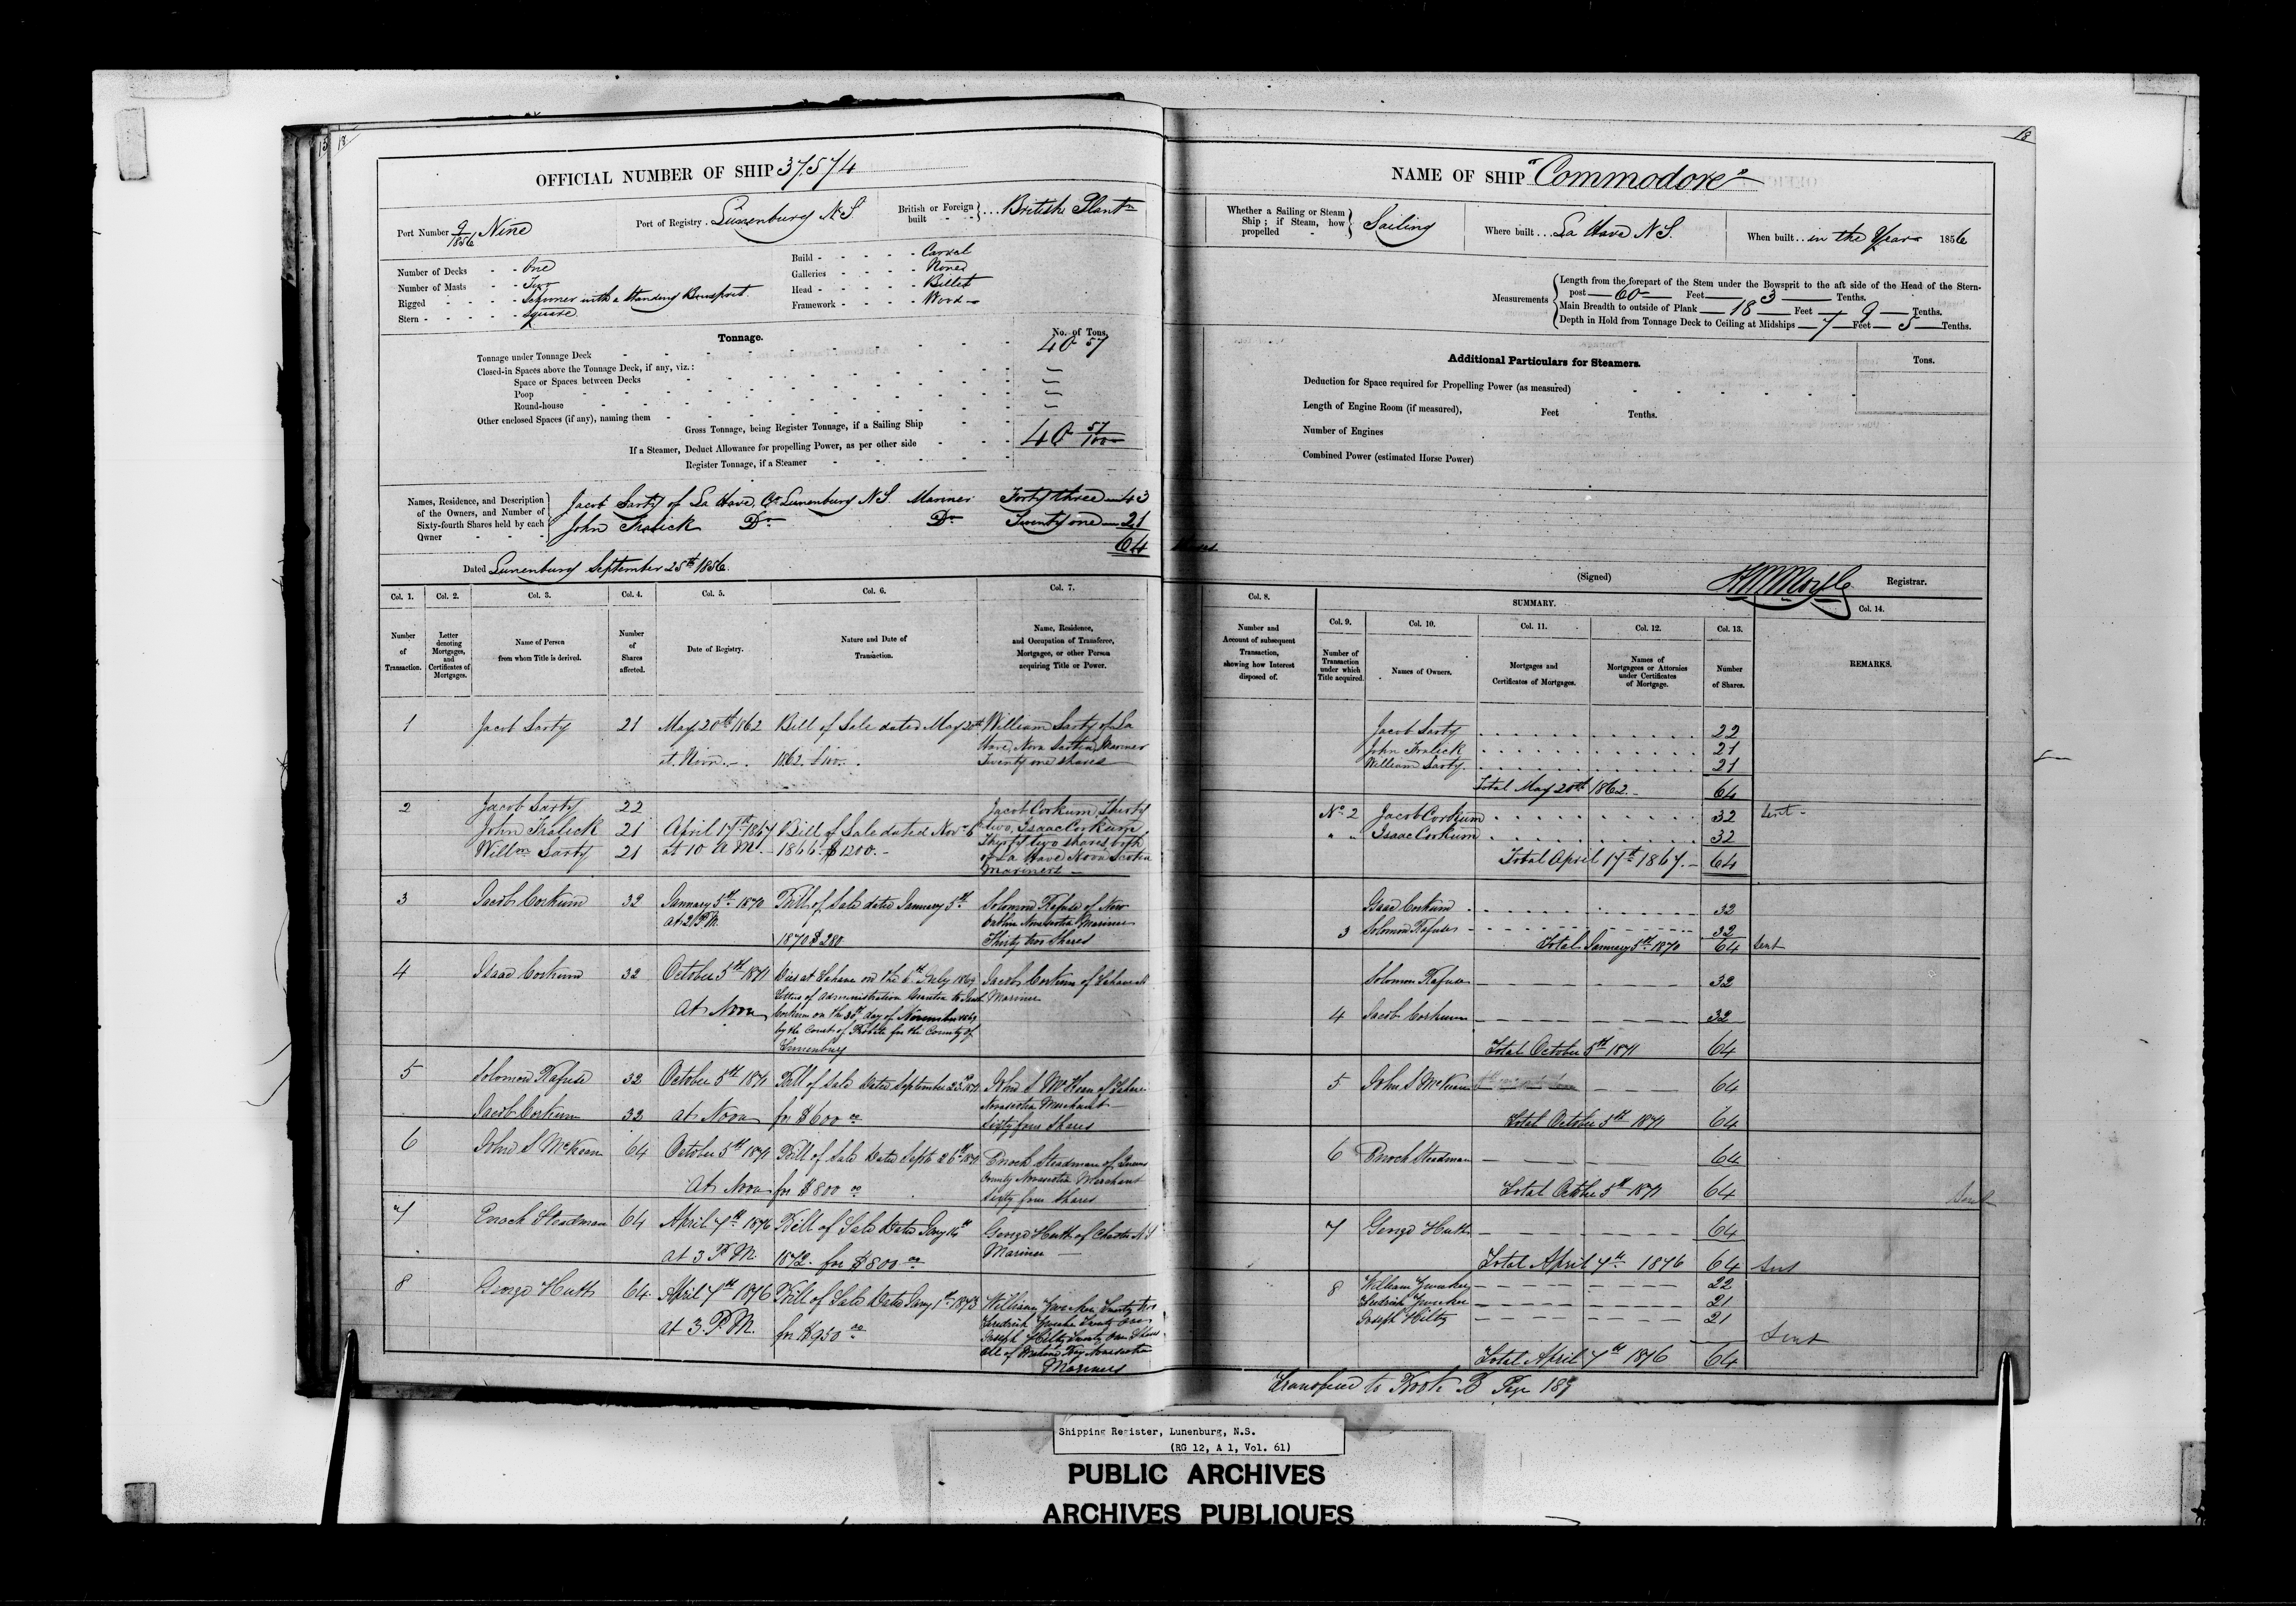 13 18
OFFICIAL NUMBER OF SHIP 37.574
Port Number 9/1856 Nine
Port of Registry . Lunenburg N S
British or Foreign built - - } ... British Plantn
Number of Decks - - One
Number of Masts - - Two
Rigged - - - - Schooner with a Standing Bowsprit
Stern - - - - - Square
Build - - - - - Carvel
Galleries - - - - None
Head - - - - - Billet
Framework - - - - Wood
Tonnage.
No. of Tons.
Tonnage under Tonnage Deck 40 57
Closed-in Spaces above the Tonnage Deck, if any, viz.:
Space or Spaces between Decks
Poop
Round-house
Other enclosed Spaces (if any), naming them
Gross Tonnage, being Register Tonnage, if a Sailing Ship 40 57/100
If a Steamer, Deduct Allowance for propelling Power, as per other side
Register Tonnage, if a Steamer
Names, Residence, and Description of the Owners, and Number of Sixty-fourth Shares held by each Owner
Jacob Sarty of La Have, Co Lunenburg N S. Mariner Forty three — 43
John Fralick Do Do Twenty one — 21
64
Dated Lunenburg September 25th 1856.
Col. 1. Col. 2. Col. 3. Col. 4. Col. 5. Col. 6. Col. 7.
Number of Transaction.
Letter denoting Mortgages, and Certificates of Mortgages.
Name of Person from whom Title is derived.
Number of Shares affected.
Date of Registry.
Nature and Date of Transaction.
Name, Residence, and Occupation of Transferee, Mortgagee, or other Person acquiring Title or Power.
1 Jacob Sarty 21 May 20th 1862 Bill of Sale dated May 20th William Sarty of La
at Noon. 1862. Have, Nova Scotia, Mariner
Twenty one shares
2 Jacob Sarty 22 Jacob Corkum Thirty
John Fralick 21 April 17th 1867 Bill of Sale dated Nov 6 two, Isaac Corkum
Willm Sarty 21 at 10 A M. 1866. $1200. Thirty two shares both
of La Have Nova Scotia
Mariners
3 Jacob Corkum 32 January 5th 1870 Bill of Sale dated January 5th Solomon Rafuse of New
at 2 P.M. 1870 $280 Dublin Novascotia Mariner
Thirty two Shares
4 Isaac Corkum 32 October 5th 1871 Died at Lahave on the 6th July 1869 Jacob Corkum of Lahave
At Noon Letters of Administration Granted to Jacob Mariner
Corkum on the day of November 1869
by the Court of Probate for the County of
Lunenburg
5 Solomon Rafuse 32 October 5th 1871 Bill of Sale Dated September 23rd John S McKean of
Jacob Corkum 32 at Noon for $600 00 Novascotia Merchant
Sixty four Shares
6 John S McKean 64 October 5th 1871 Bill of Sale Dated Sept 26th Enoch Steadman of Queens
At Noon for $800 00 County Novascotia Merchant
Sixty four Shares
7 Enoch Steadman 64 April 7th 1876 Bill of Sale Dated Jany 14th George Huth of Chester N S
at 3 P M. 1872. for $800 00 Mariner
8 George Huth 64 April 7th 1876 Bill of Sale Dated Jany 1st 1873 William Zwicker Twenty two
at 3. P M. for $950 00 Fredrick Zwicker Twenty one
Joseph Hilty Twenty one Shares
All of Mahone Bay Novascotia
Mariners
18
NAME OF SHIP "Commodore"
Whether a Sailing or Steam Ship; if Steam, how propelled - } Sailing
Where built ... La Have N S.
When built .. in the Year 1856
Measurements
Length from the forepart of the Stem under the Bowsprit to the aft side of the Head of the Stern-
post — 60 — Feet — 3 — Tenths.
Main Breadth to outside of Plank — 18 — Feet — 9 — Tenths.
Depth in Hold from Tonnage Deck to Ceiling at Midships — 7 — Feet — 5 — Tenths.
Additional Particulars for Steamers.
Tons.
Deduction for Space required for Propelling Power (as measured)
Length of Engine Room (if measured), Feet Tenths.
Number of Engines
Combined Power (estimated Horse Power)
(Signed) Registrar.
Col. 8.
Number and Account of subsequent Transaction, showing how Interest disposed of.
SUMMARY.
Col. 9. Col. 10. Col. 11. Col. 12. Col. 13. Col. 14.
Number of Transaction under which Title acquired.
Names of Owners.
Mortgages and Certificates of Mortgages.
Names of Mortgagees or Attornies under Certificates of Mortgage.
Number of Shares.
REMARKS.
Jacob Sarty 22
John Fralick 21
William Sarty 21
Total May 20th 1862. 64
No 2 Jacob Corkum 32 Sent
" " Isaac Corkum 32
Total April 17th 1867. 64
Isaac Corkum 32
3 Solomon Rafuse 32
Total January 5th 1870 64 Sent
Solomon Rafuse 32
4 Jacob Corkum 32
Total October 5th 1871 64
5 John S McKean 64
Total October 5th 1871 64
6 Enoch Steadman 64
Total October 5th 1871 64
Sent
7 George Huth 64
Total April 7th 1876 64 Sent
8 William Zwicker 22
Fredrick Zwicker 21
Joseph Hilty 21
Sent
Total April 7th 1876 64
Transfered to Book B Page 189
Shipping Register, Lunenburg, N.S.
(RG 12, A 1, Vol. 61)
PUBLIC ARCHIVES
ARCHIVES PUBLIQUES